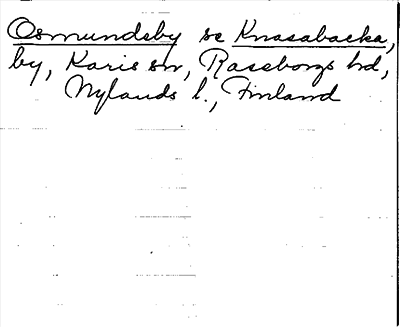 Osmundsby se Knasabacka,
by, Karis sn, Raseborgs hd,
Nylands l., Finland